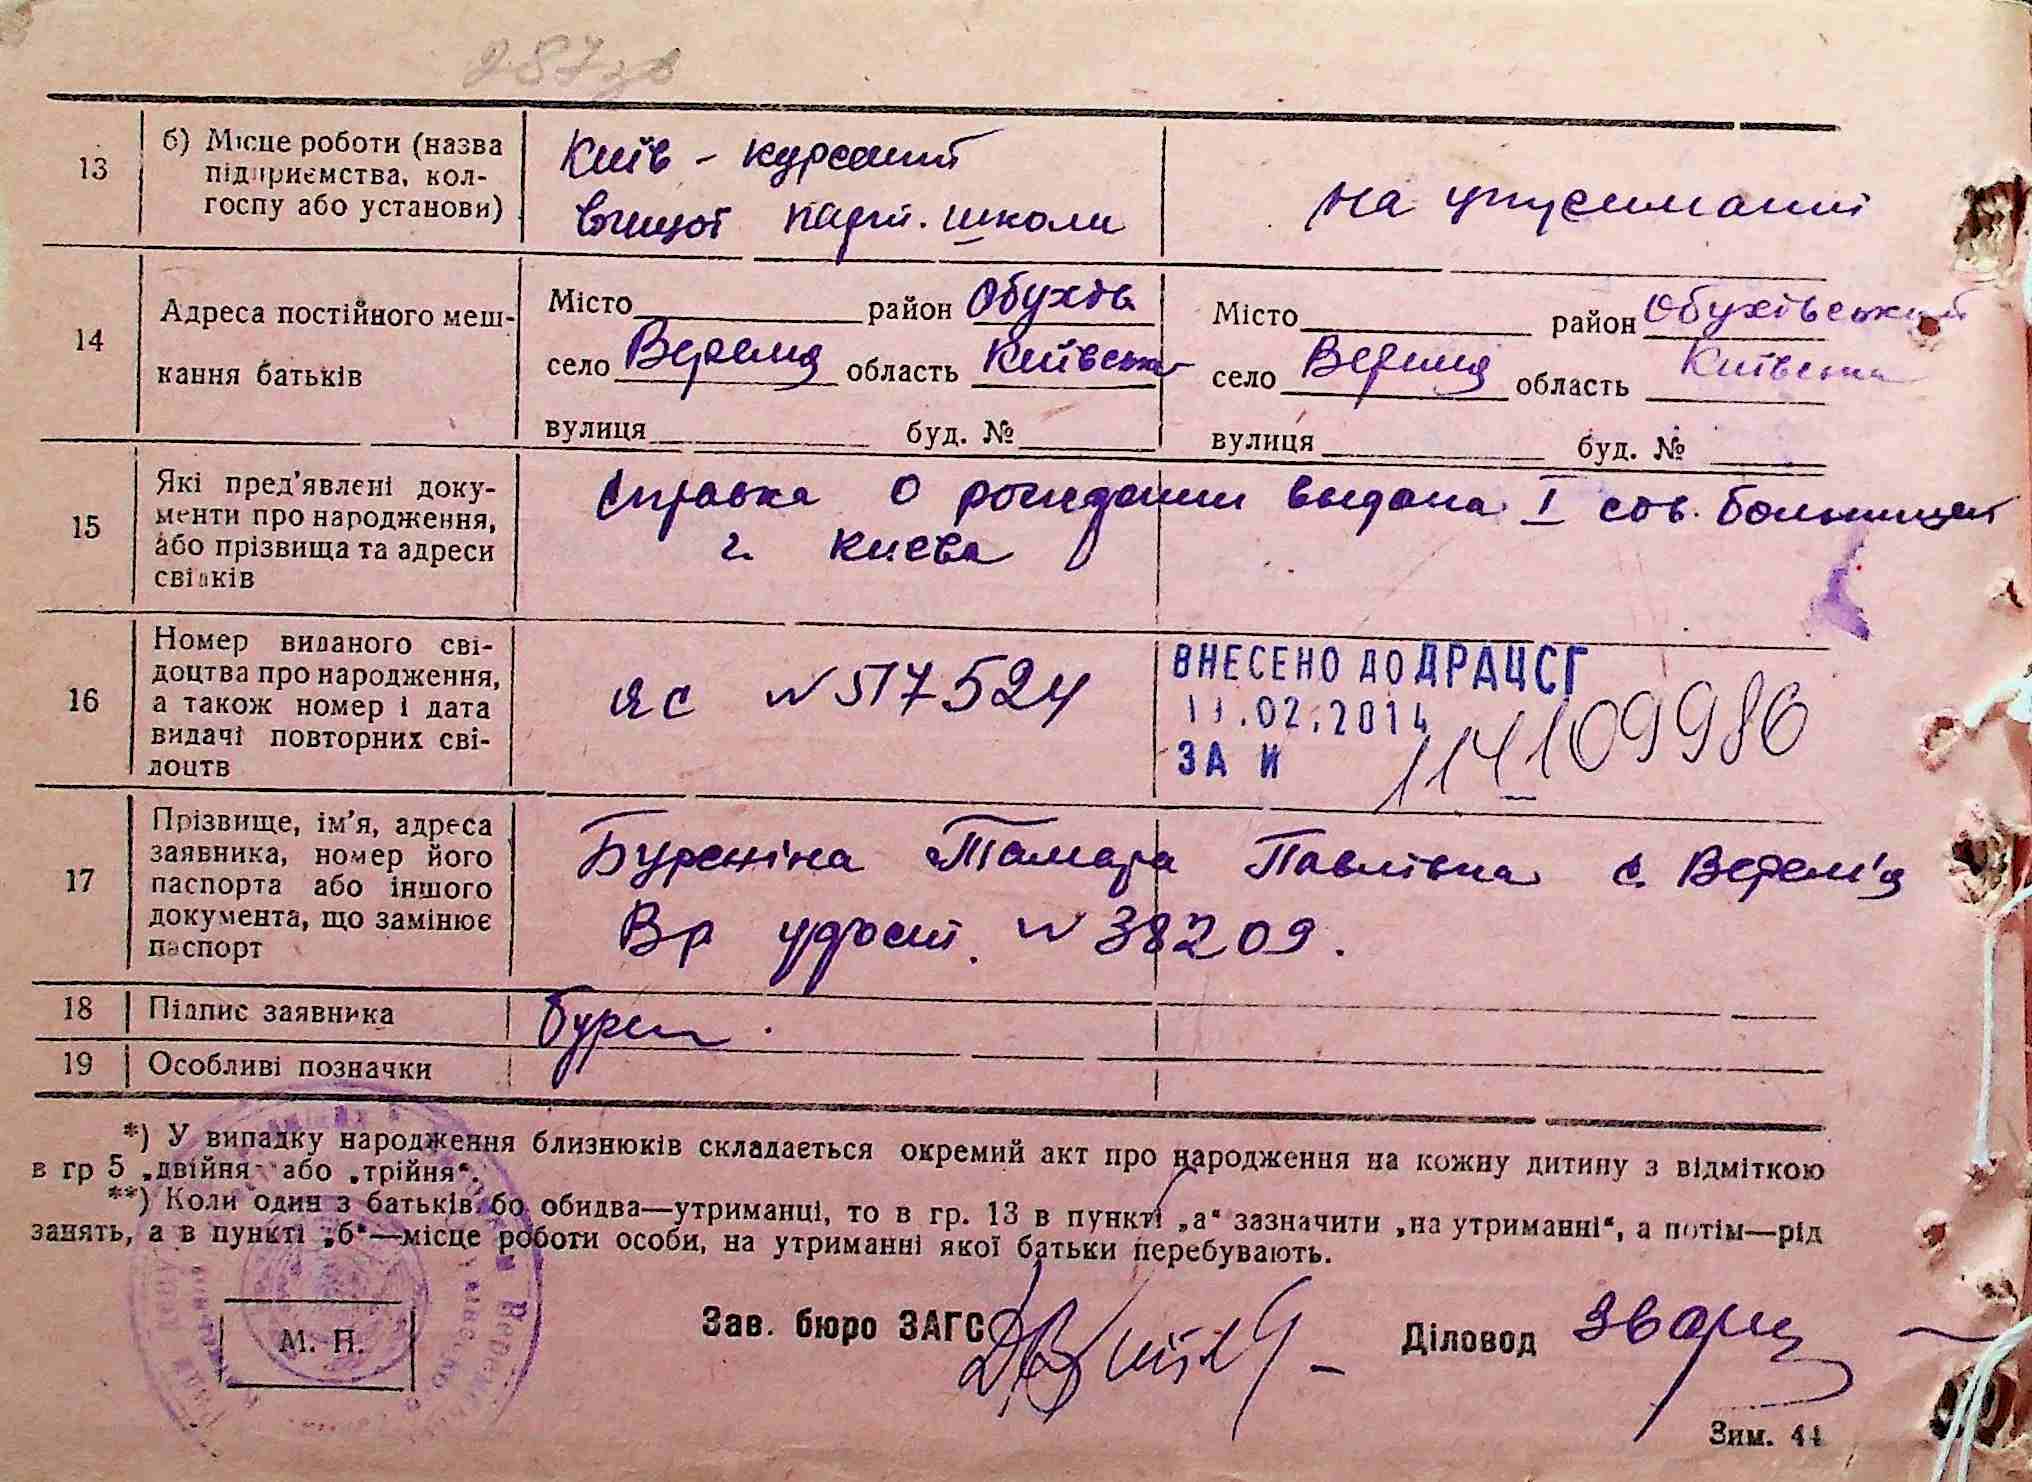 287зв
13 б) Місце роботи (назва підприємства, кол-
госпу або установи)
Київ - курсант
вищої парт. школи
на утриманні
14 Адреса постійного меш-
кання батьків
Місто район Обухів
село Верем'я область Київська
вулиця буд. №
Місто район Обухівський
село Верем'я область Київська
вулиця буд. №
15 Які пред'явлені доку-
менти про народження,
або прізвища та адреси
свідків
Справка о рождении выдана I сов. больницей
г. Киева
16 Номер виданого сві-
доцтва про народження,
а також номер і дата
видачі повторних сві-
доцтв
ЯС № 517524
ВНЕСЕНО ДО ДРАЦСГ
11.02.2014
ЗА №
114109986
17 Прізвище, ім'я, адреса
заявника, номер його
паспорта або іншого
документа, що замінює
паспорт
Буреніна Тамара Павлівна с. Верем'я
Вр удост. № 38209.
18 Підпис заявника
Бурен
19 Особливі позначки
*) У випадку народження близнюків складається окремий акт про народження на кожну дитину з відміткою
в гр 5 „двійня“ або „трійня“.
**) Коли один з батьків, бо обидва—утриманці, то в гр. 13 в пункті „а“ зазначити „на утриманні“, а потім—рід
занять, а в пункті „б“—місце роботи особи, на утриманні якої батьки перебувають.
М. П.
Зав. бюро ЗАГС
Діловод
Зим. 44